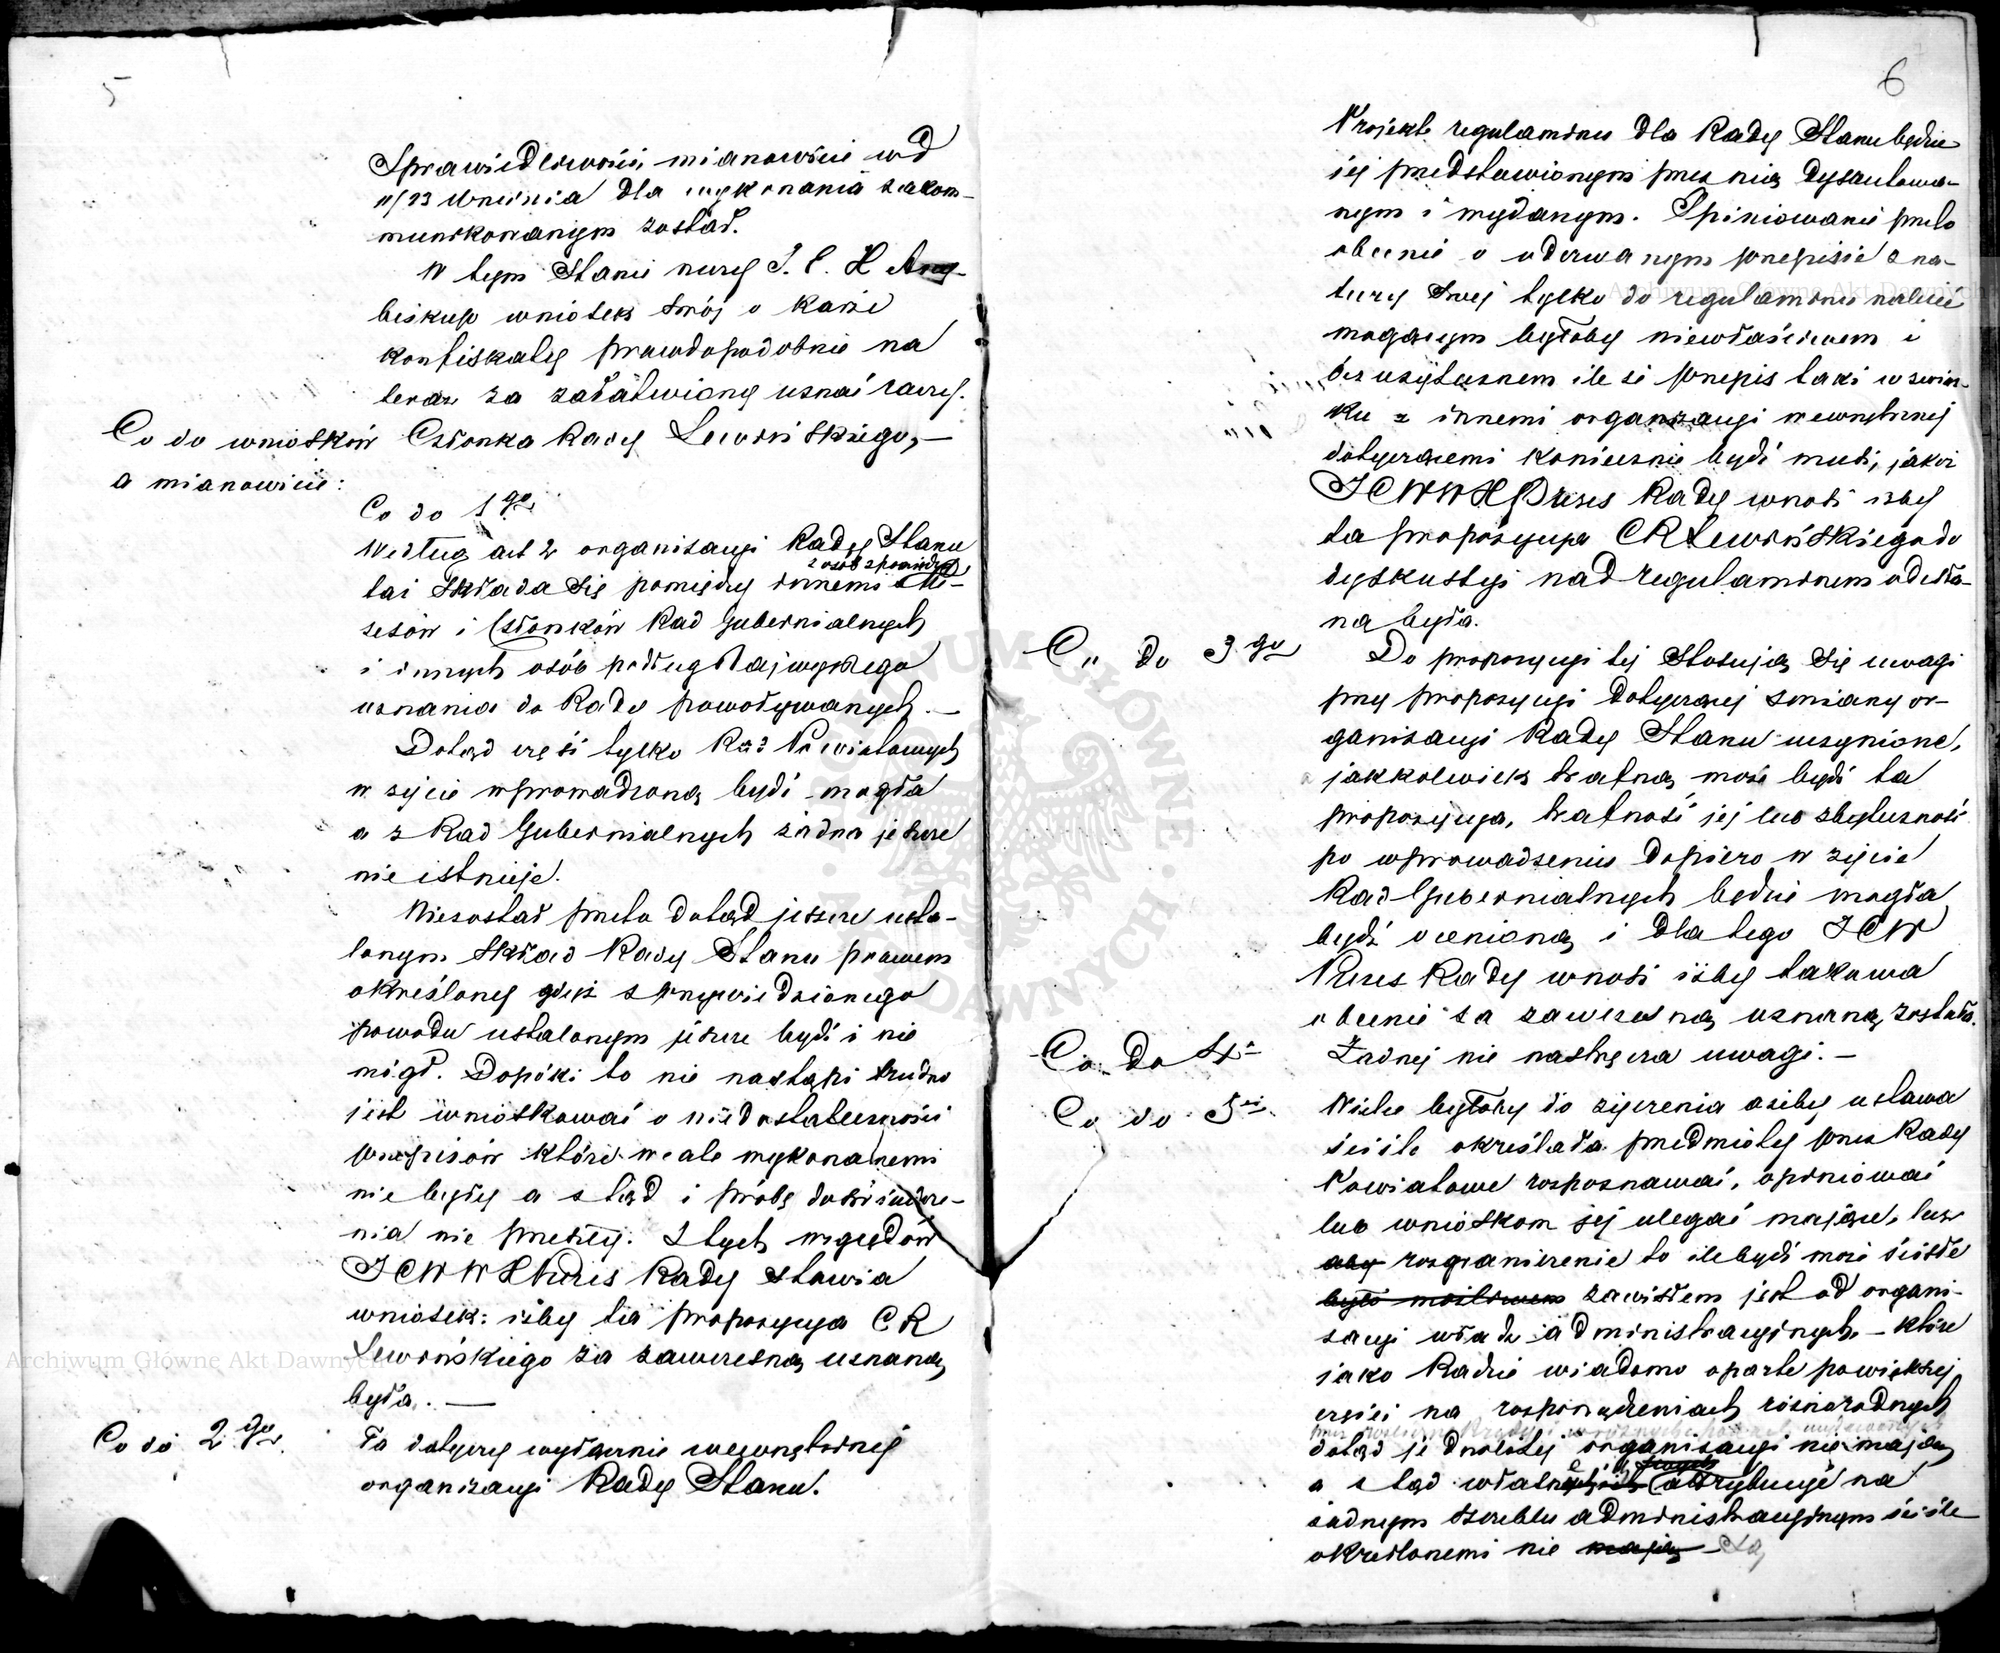 5
Sprawiedliwości, mianowicie w d
11/23 Września dla wykonania zakom-
munikowanym został.
W tym Stanie rzeczy J. E. X Arcy-
biskup wniosek swój o karze
konfiskaty prawdopodobnie na
teraz za załatwiony uznać raczy.
Co do wniosków Członka Rady Lewińskiego, —
a mianowicie:
Co do 1go
Według art 2 organizacyi Rady Stanu
z osób z pomiędzy
taż składa się pomiędzy innemi Pre-
zesów i Członków Rad Gubernialnych
i innych osób podług Najwyższego
uznania do Rady powoływanych. —
Dotąd część tylko Rad Powiatowych
w życie wprowadzoną być mogła
a z Rad Gubernialnych żadna jeszcze
nie istnieje.
Niezostał przeto dotąd jeszcze usta-
lonym skład Rady Stanu prawem
określony gdyż z przywiedzionego
powodu ustalonym jeszcze być i nie
mógł. Dopóki to nie nastąpi trudno
jest wnioskować o niedostateczności
przepisów które wcale wykonanemi
nie były a stąd i próbę doświadcze-
nia nie przeszły. Z tych względów
JCWW X Prezes Rady stawia
wniosek: iżby ta propozycya CR
Lewińskiego za zawczesną uznaną
była. —
Co do 2go
Ta dotyczy wyłącznie wewnętrznej
organizacyi Rady Stanu.
6
Projekt regulaminu dla Rady Stanu będzie
jej przedstawionym przez nią dyskutowa-
nym i wydanym. Opiniowanie przeto
obecnie o oderwanym przepisie z na-
tury swej tylko do regulaminu należeć
mogącym byłoby niewłaściwem i
bezużytecznem ile że przepis taki w związ-
ku z innemi organizacyi wewnętrznej
dotyczącemi koniecznie być musi, jakoż
JCWWX Prezes Rady wnosi iżby
ta propozycya CR Lewińskiego do
dyskusyi nad regulaminem odesła-
na była.
Co do 3go
Do propozycyi tej stosują się uwagi
przy propozycyi dotyczącej zmiany or-
ganizacyi Rady Stanu uczynione,
jakkolwiek trafną może być ta
propozycya, trafność jej lub zbyteczność
po wprowadzeniu dopiero w życie
Rad Gubernialnych będzie mogła
być ocenioną i dla tego JCW
Prezes Rady wnosi iżby takowa
obecnie za zawczesną uznaną została.
Co do 4o
Żadnej nie nastręcza uwagi. —
Co do 5ci
Wielce byłoby do życzenia ażeby ustawa
ściśle określała przedmioty przez Rady
Powiatowe rozpoznawać, opiniować
lub wnioskom jej ulegać mające, lecz
aby rozgraniczenie to ile być może ścisłe
było możliwem zawisłem jest od organi-
zacyi władz administracyjnych — które
jako Radzie wiadomo oparte powiększej
części na rozporządzeniach różnorodnych
dotąd jednolitej organizacyi nie mają
a stąd attrybucye na
żadnym szczeblu administracyjnym ściśle
określonemi nie mają są
Archiwum Główne Akt Dawnych
Archiwum Główne Akt Dawnych
ARCHIWUM GŁÓWNE AKT DAWNYCH